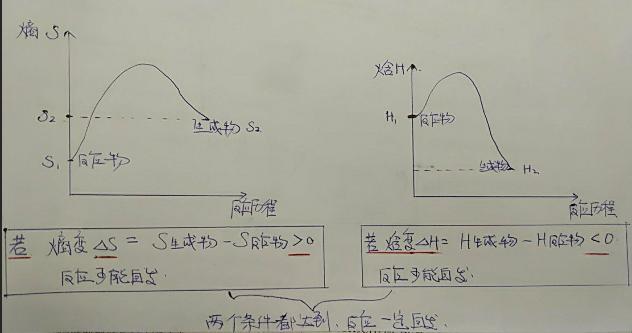 熵 S
S₂
生成物 S₂
S₁
反应物
反应历程
焓H
H₁
反应物
生成物
H₂
反应历程
若 熵变△S = S生成物 - S反应物 > 0
反应可能自发.
若焓变△H = H生成物 - H反应物 < 0
反应可能自发.
两个条件都达到, 反应一定自发.